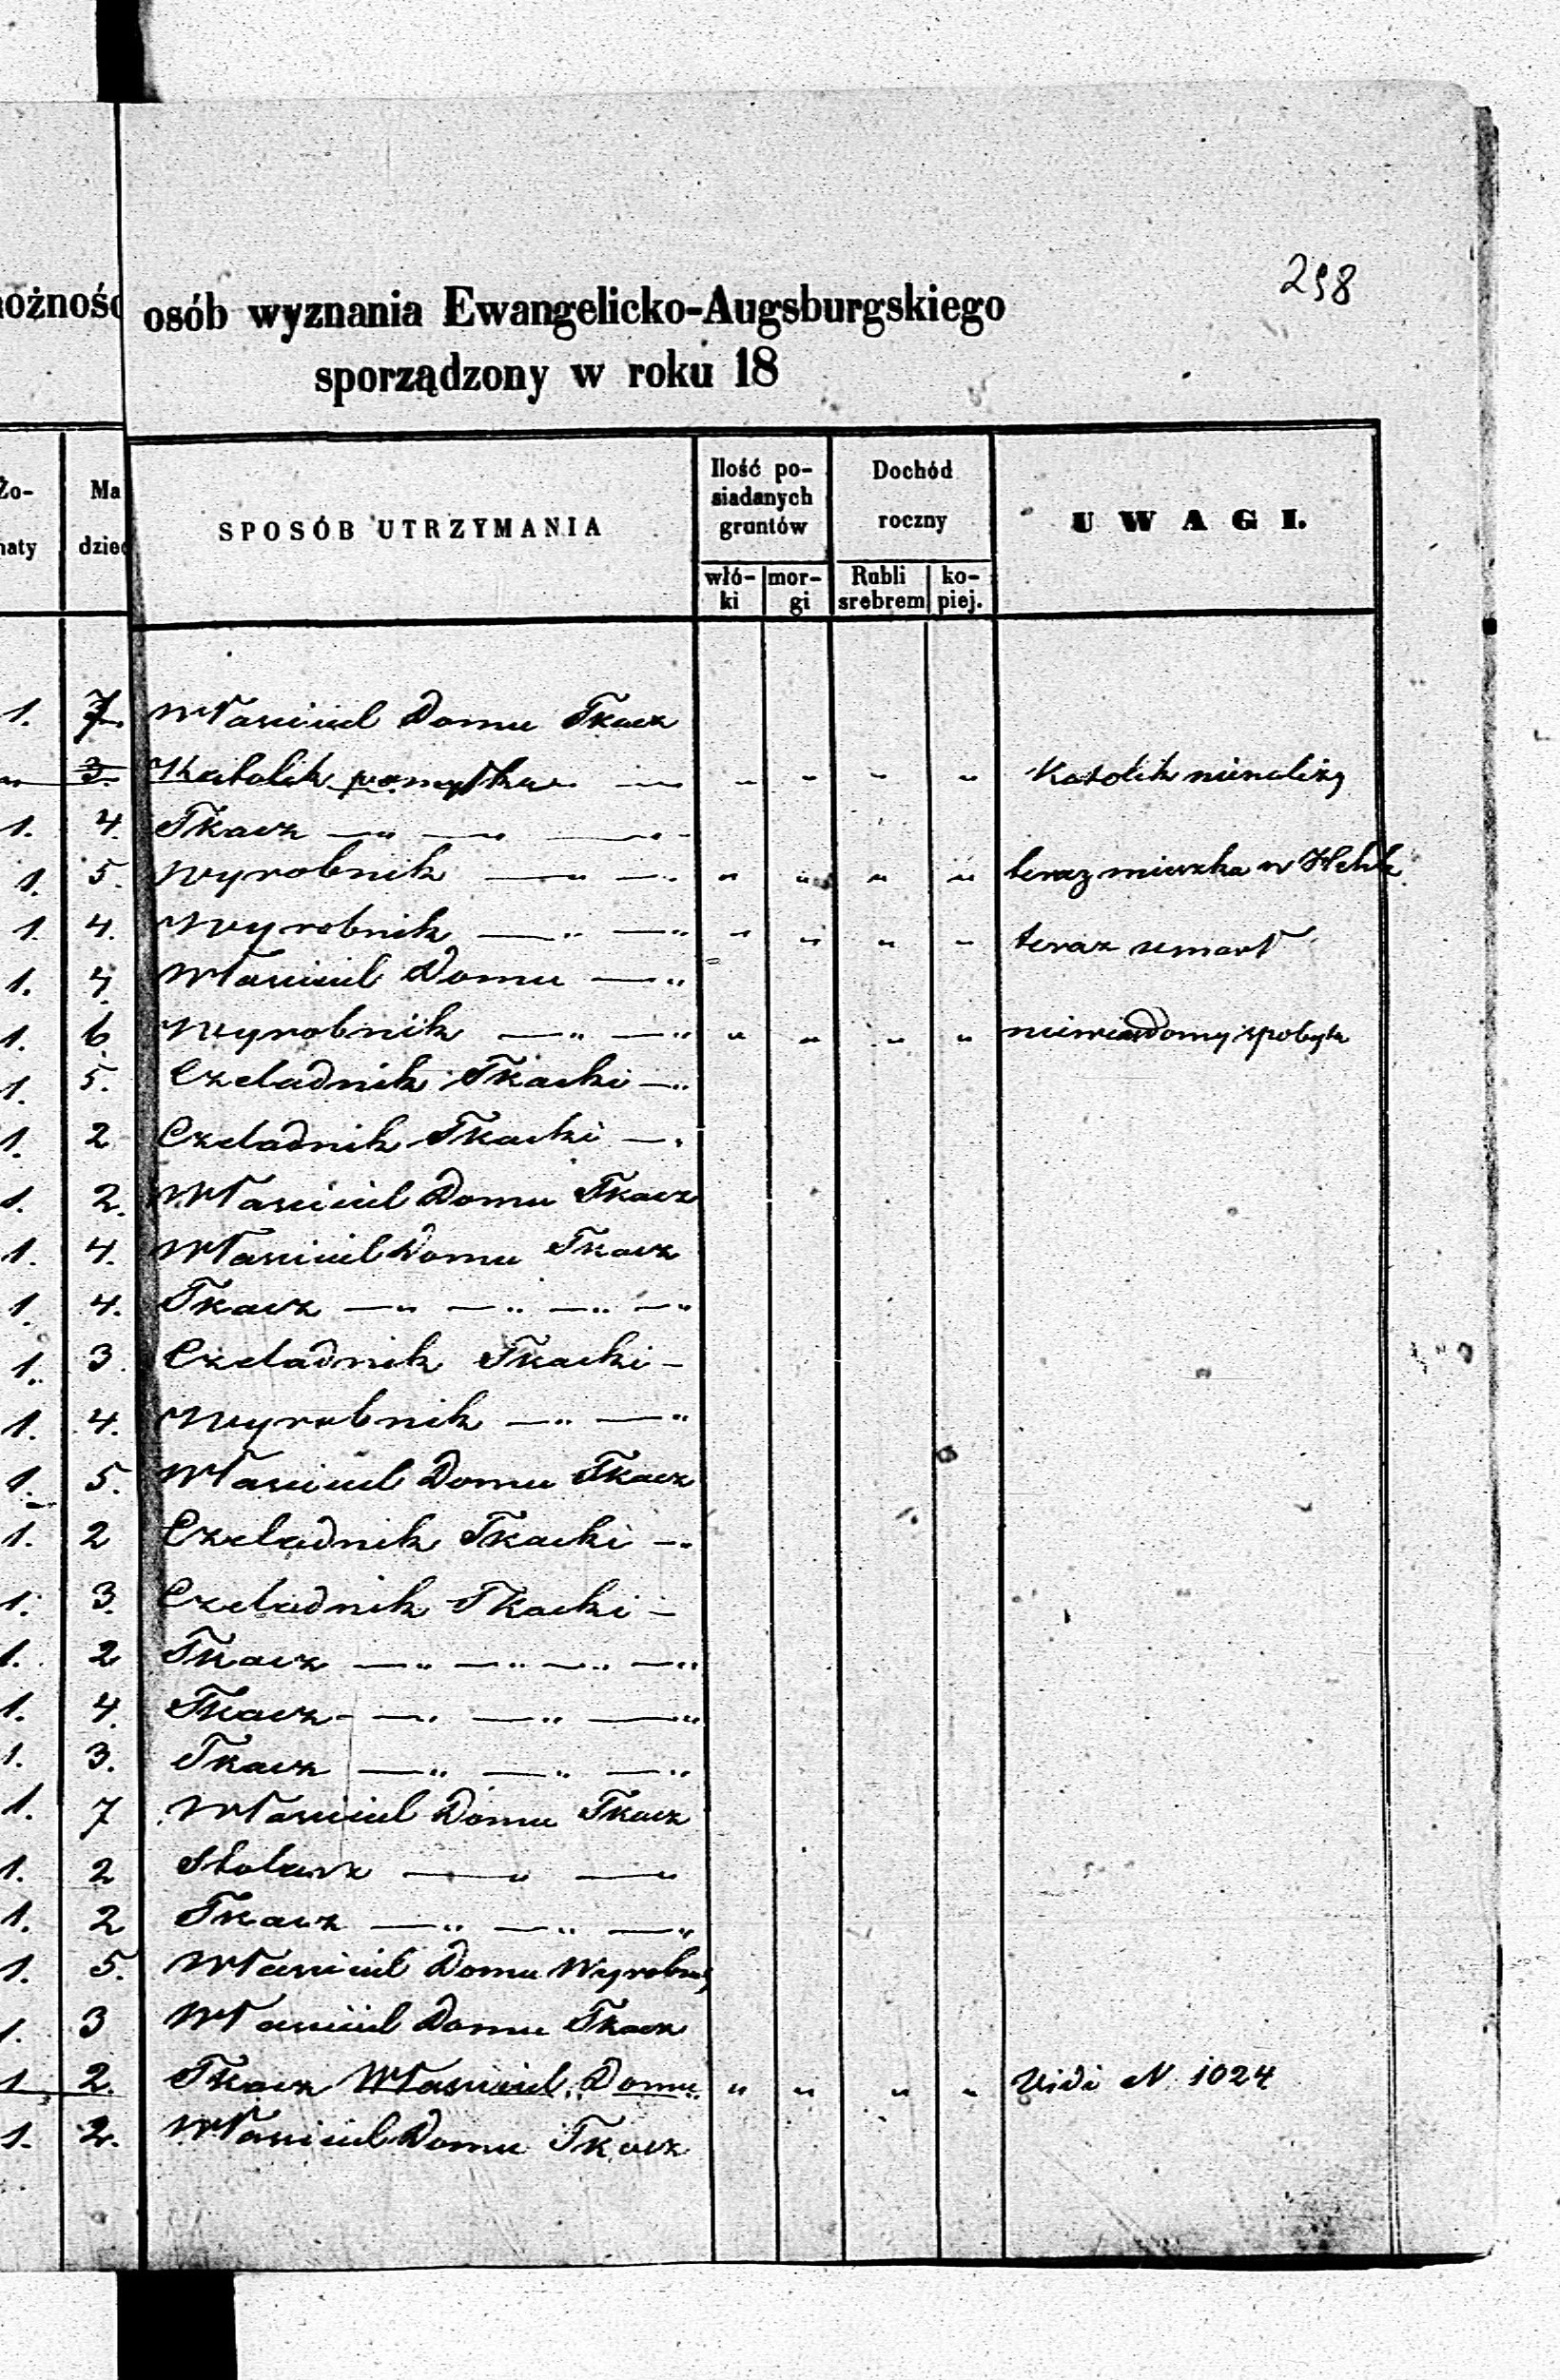 298
ożność osób wyznania Ewangelicko-Augsburgskiego
sporządzony w roku 18
Żo- Ma SPOSÓB UTRZYMANIA Ilość po- Dochód UWAGI.
siadanych
naty dziec gruntów roczny
włó- mor- Rubli ko-
ki gi srebrem piej.
1. 7. Własciciel Domu Tkacz
3. Katolik pomyłka — „ „ „ „ Katolik nienależy
1. 4. Tkacz —„ —„ —„ -
1. 5. Wyrobnik —„ — „ „ „ „ teraz mieszka w
1. 4. Wyrobnik —„ —„ „ „ „ „ teraz umarł
1. 4. Własciciel Domu —„
1. 6 Wyrobnik —„ —„ „ „ „ „ niewiadomy spobytu
1. 5. Czeladnik Tkacki —„
1. 2 Czeladnik Tkacki —.
1. 2. Własciciel Domu Tkacz
1. 4. Własciciel Domu Tkacz
1. 4. Tkacz —„ —„ —„ —„
1. 3. Czeladnik Tkacki —
1. 4. Wyrobnik —„ —„
1. 5. Własciciel Domu Tkacz
1. 2 Czeladnik Tkacki —.
1. 3. Czeladnik Tkacki —
1. 2 Tkacz —„ —„ —„ —„
1. 4. Tkacz - —„ —„ —„
1. 3. Tkacz —„ —„ —„
1. 7 Własciciel Domu Tkacz
1. 2 Stolarz —„ —„
1. 2 Tkacz —„ —„ —„
1. 5. Własciciel Domu
1. 3 Własciciel Domu Tkacz
1 2. Tkacz Własciciel Domu „ „ „ „ Vidi N. 1024
1. 2. Własciciel Domu Tkacz